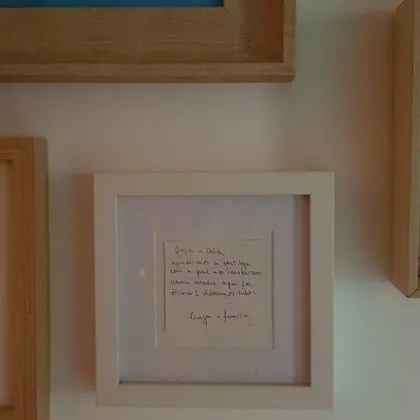 agradecemos a gentileza
com a qual nos receberam
nossa estadia aqui foi
ótima! Adoramos tudo!
+ família